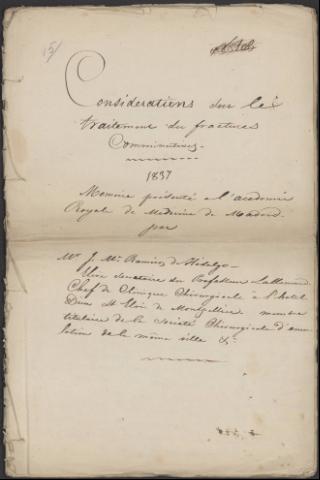 15
Considerations sur le
traitement du fractures
Comminutives.
1837
Memoire présenté a l'academie
Royal de Medecine de Madrid
par
Mr J. Mt Ramirez de Hidalgo
secretaire du Professeur Lallemand
Chef de Clinique Chirurgicale à l'hotel
Dieu St Eloi de Montpellier, membre
titulaire de la Société Chirurgicale d'emu
lation de la même ville &